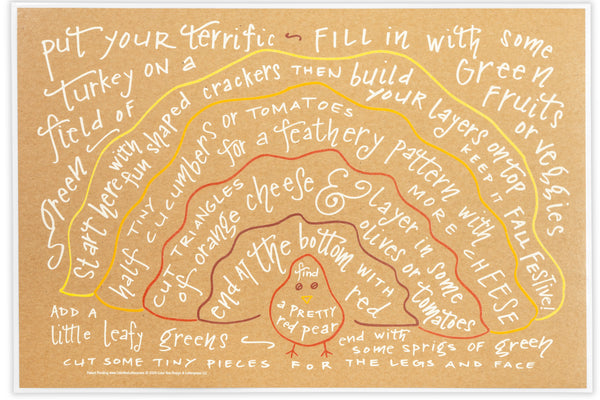 put your terrific
turkey on a
field of
green
FILL in with some
Green
fruits
or veggies
Start here with
fun shaped crackers THEN build
YOUR layers on top
KEEP IT FALL FESTIVE!
half TINY
CUCUMBERS or TOMATOES
for a feathery pattern with
MORE CHEESE
CUT TRIANGLES
of orange cheese & layer in some
olives or
tomatoes
end AT the bottom WITH
red
find
a PRETTY
red pear
ADD A
little leafy greens
end with
some sprigs of green
CUT SOME TINY PIECES FOR THE LEGS AND FACE
Patent Pending